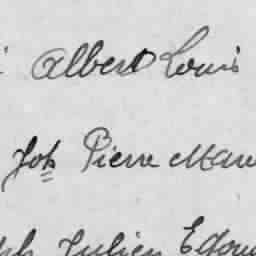 Albert Louis
Jph Pierre Mare
ph Julien Edou